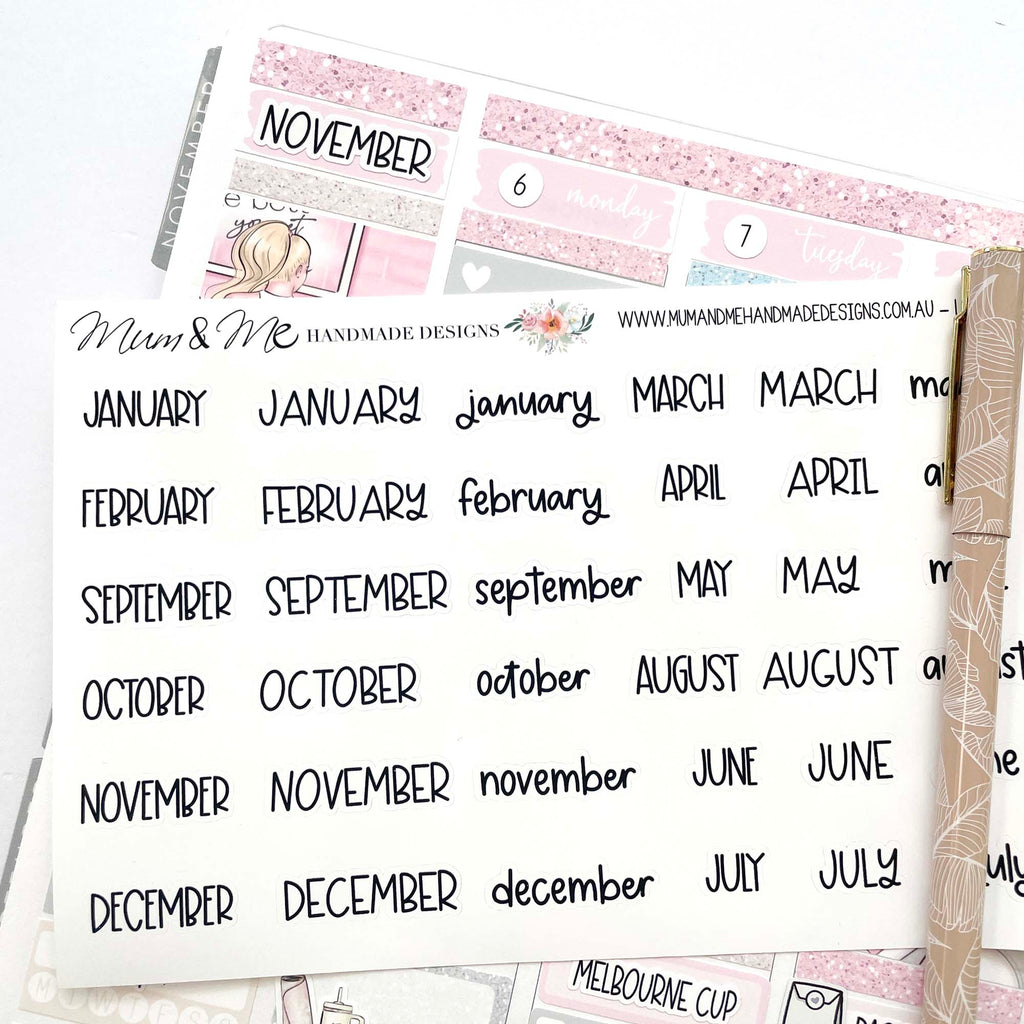 NOVEMBER
NOVEMBER
6 monday
7 tuesday
Mum & Me HANDMADE DESIGNS WWW.MUMANDMEHANDMADEDESIGNS.COM.AU –
JANUARY JANUARY january MARCH MARCH
FEBRUARY FEBRUARY february APRIL APRIL
SEPTEMBER SEPTEMBER september MAY MAY
OCTOBER OCTOBER october AUGUST AUGUST
NOVEMBER NOVEMBER november JUNE JUNE
DECEMBER DECEMBER december JULY JULY
MELBOURNE CUP
M T W T F S S